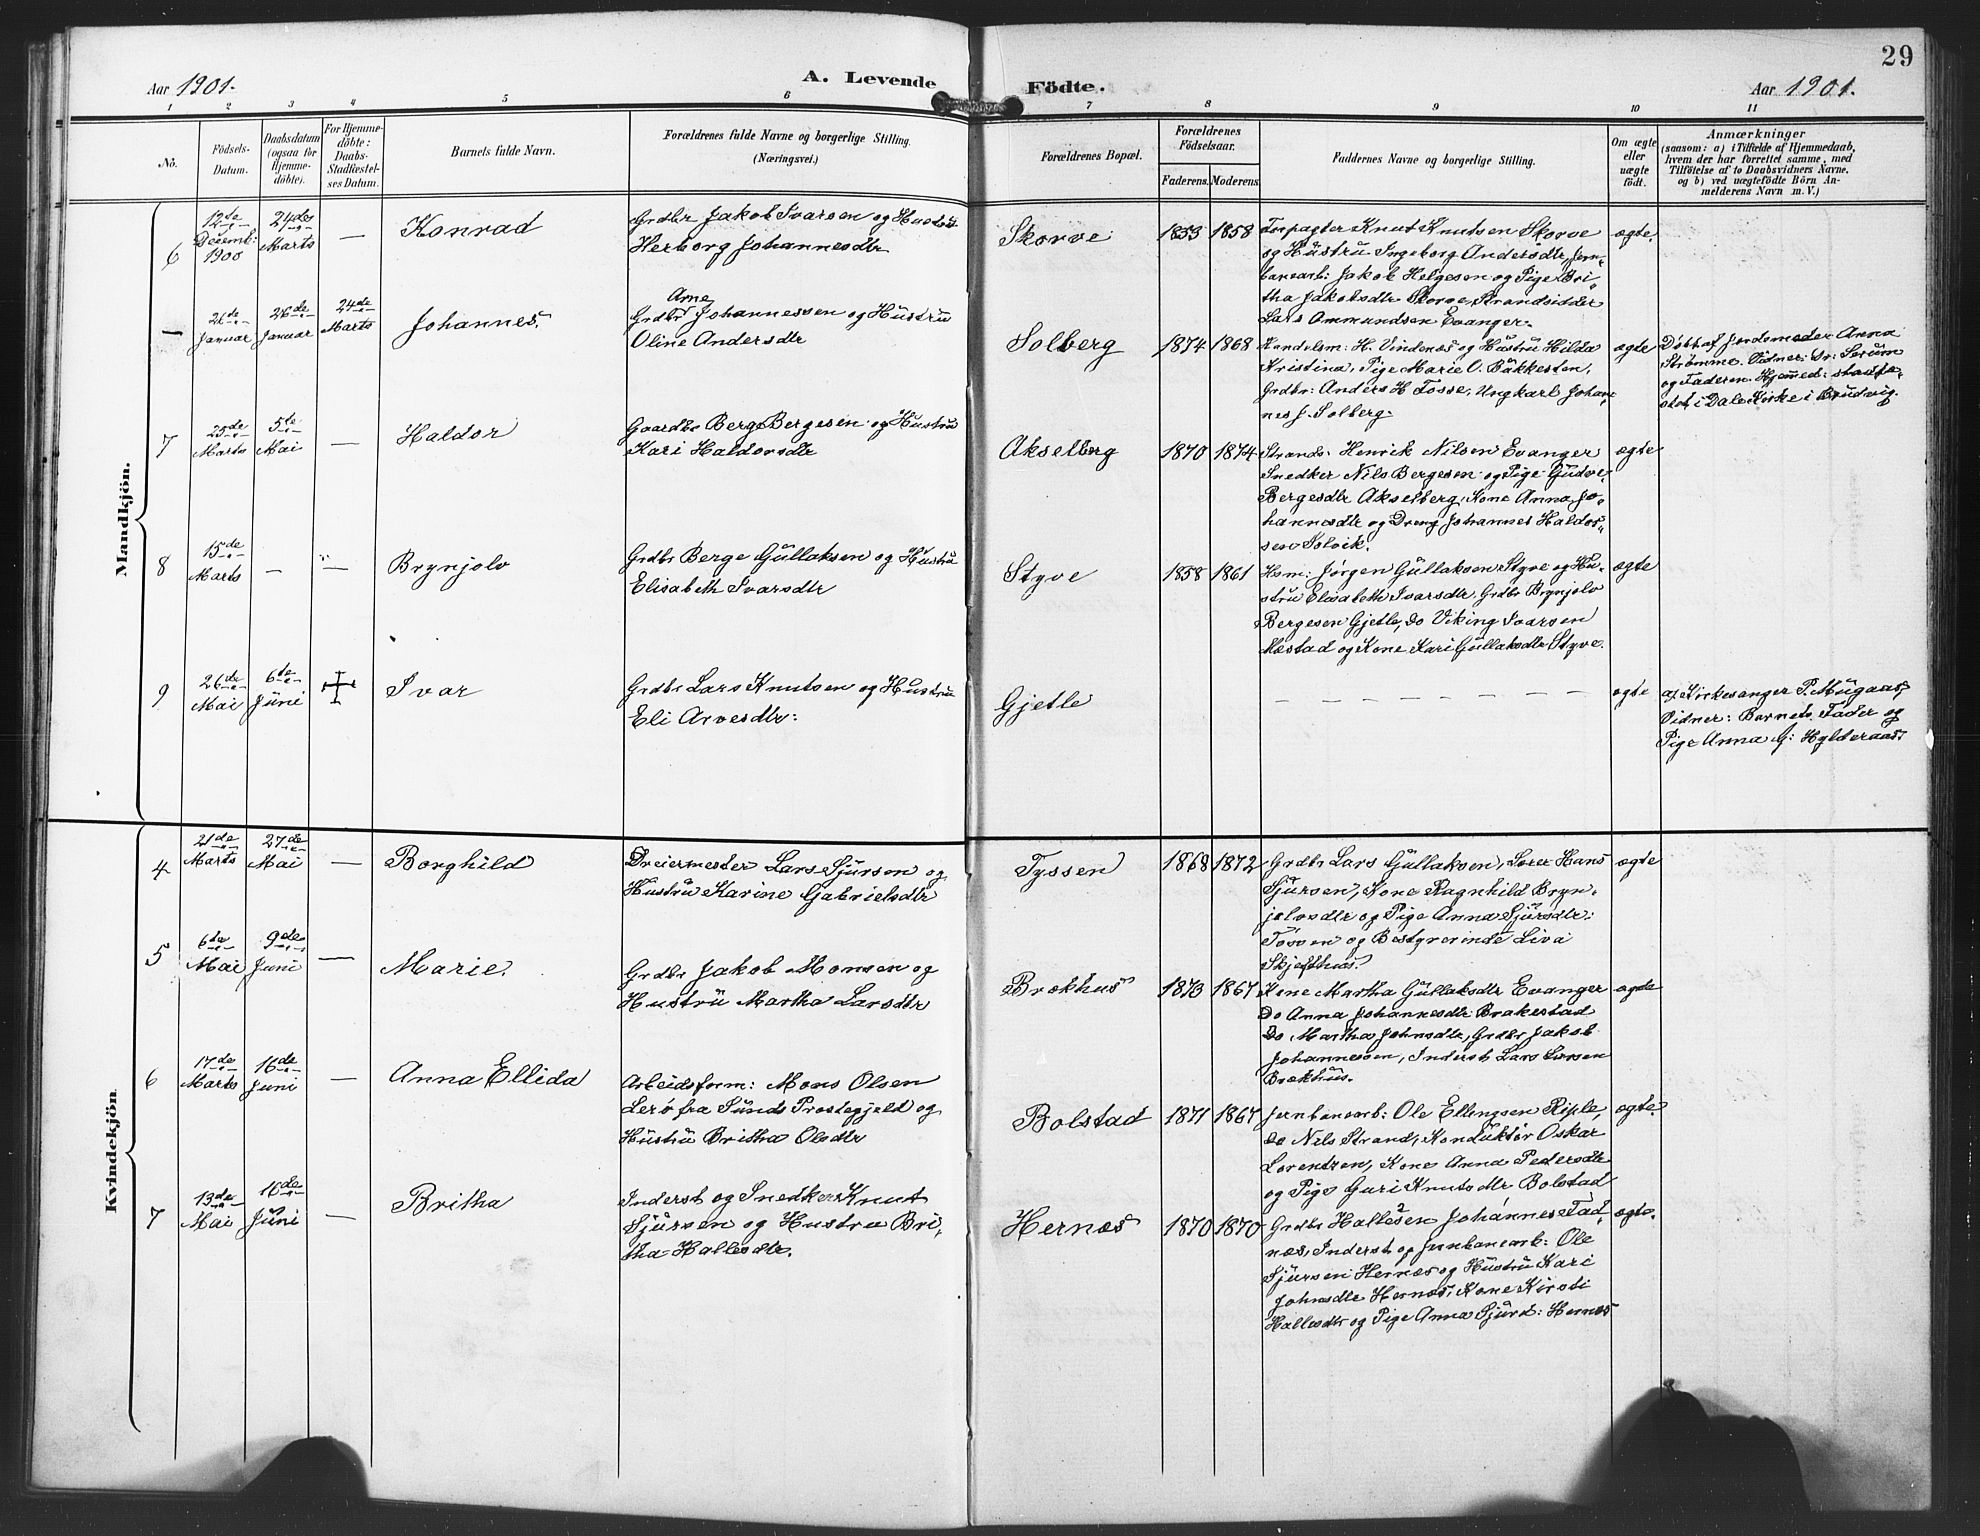 29
Aar 1901.
A. Levende
Födte.
Aar 1901.
1 2 3 4 5 6 7 8 9 10 11
No.
Födsels-
Datum.
Daabsdatum
(ogsaa for
Hjemme-
döbte).
For Hjemme-
döbte:
Daabs-
Stadfæstel-
ses Datum.
Barnets fulde Navn.
Forældrenes fulde Navne og borgerlige Stilling.
(Næringsvei.)
Forældrenes Bopæl.
Forældrenes
Födselsaar.
Faderens. Moderens.
Faddernes Navne og borgerlige Stilling.
Om ægte
eller
uægte
födt.
Anmærkninger
(saasom: a) i Tilfælde af Hjemmedaab,
hvem der har forrettet samme, med
Tilföielse af to Daabsvidners Navne,
og b) ved uægtefödte Börn An-
melderens Navn m. V.)
Mandkjön.
6
12te
Decemb:
1900
24des
Marts
—
Konrad
Grdbr Jakob Ivarsen og Hustru
Herborg Johannesdtr
Skorve
1853 1858
Forpagter Knut Knutsen Skorve
og Hustru Ingeborg Andersdtr, Jern-
banearb: Jakob Helgesen og Pige Bri-
tha Jakobsdtr Skorve, Strandsidder
Lars Ommundsen Evanger.
ægte.
—
26de
Januar
26de
Januar
24de
Marts
Johannes.
Arne
Grdbr Johannessen og Hustru
Oline Andersdtr
Solberg
1874 1868
Handelsm: H. Vindenæs og Hustru Hilda
Kristina, Pige Marie O. Bakkesten,
Grdbr: Anders H Fosse, Ungkarl Johan-
nes J. Solberg.
ægte
Döbt af Jordemoder Anna
Strømme. Vidner: Dr: Serum
og Faderen. Hjemmed: stadfæ-
stet i Dale Kirke i Bruvig.
7
25de
Marts
5te
Mai
—
Haldor
Gaardbr Berge Bergesen og Hustru
Kari Haldorsdtr
Akselberg
1870 1874
Strands: Henrik Nilsen Evanger
Snedker Nils Bergesen og Pige Gudve
Bergesdtr Akselberg, Kone Anna Jo-
hannesdtr og Dreng Johannes Haldor-
sen Solvik.
ægte
8
15de
Marts
— —
Brynjolv
Grdbr Berge Gullaksen og Hustru
Elisabeth Ivarsdtr
Styve
1858 1861
Hsm: Jørgen Gullaksen Styve og Hu-
stru Elisabeth Ivarsdtr, Grdbr Brynjolv
Bergesen Gjetle, Do Viking Ivarsen
Mæstad og Kone Kari Gullaksdtr Styve.
ægte
9
26de
Mai
6te
Juni
Ivar
Grdbr Lars Knutsen og Hustru
Eli Arvesdtr:
Gjetle
— — — — — — —
ægte
af Kirkesanger P. Mugaas,
Vidner: Barnets Fader og
Pige Anna G: Hylderaas.
Kvindekjön
4
21de
Marts
27de
Mai
—
Borghild
Dreiermester Lars Sjursen og
Hustru Karine Gabrielsdtr
Tyssen
1868 1872
Grdbr Lars Gullaksen, Lærer Hans
Sjursen, Kone Ragnhild Bryn-
jolvsdtr og Pige Anna Sjursdtr:
Tössen og Bestyrerinde Liva
Skjelthus.
ægte
5
6te
Mai
9de
Juni
—
Marie.
Grdbr Jakob Monsen og
Hustru Martha Larsdtr
Brækhus
1873 1867
Kone Martha Gullaksdtr Evanger
Do Anna Johannesdtr Brakestad
Do. Martha Johnsdtr, Grdbr Jakob
Johannesen, Inderst Lars Larsen
Brækhus.
ægte
6
17de
Marts
16de
Juni
—
Anna Ellida
Arbeidsform: Mons Olsen
Lerö fra Sunds Prestegjeld og
Hustru Britha Olsdtr
Bolstad
1871 1867
Jernbanearb: Ole Ellingsen Riple,
Do Nils Strand, Konduktör Oskar
Lorentzen, Kone Anna Pedersdtr
og Pige Guri Knutsdtr Bolstad
ægte.
7
13de
Mai
16de
Juni
—
Britha
Inderst og Snedker Knut
Sjursen og Hustru Bri-
tha Hallesdtr.
Hernæs
1870 1870
Grdbr Hallesen Johannes Fad-
næs, Inderst og Jernbanearb: Ole
Sjursen Hernæs og Hustru Kari
Johnsdtr Hernæs, Kone Kirsti
Hallesdtr og Pige Anna Sjurd: Hernæs
ægte.